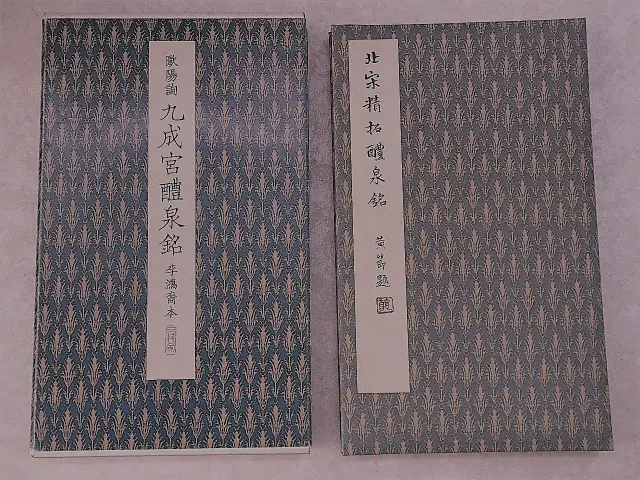 歐陽詢 九成宮醴泉銘 李鴻裔本
北宋精拓醴泉銘 黃節題